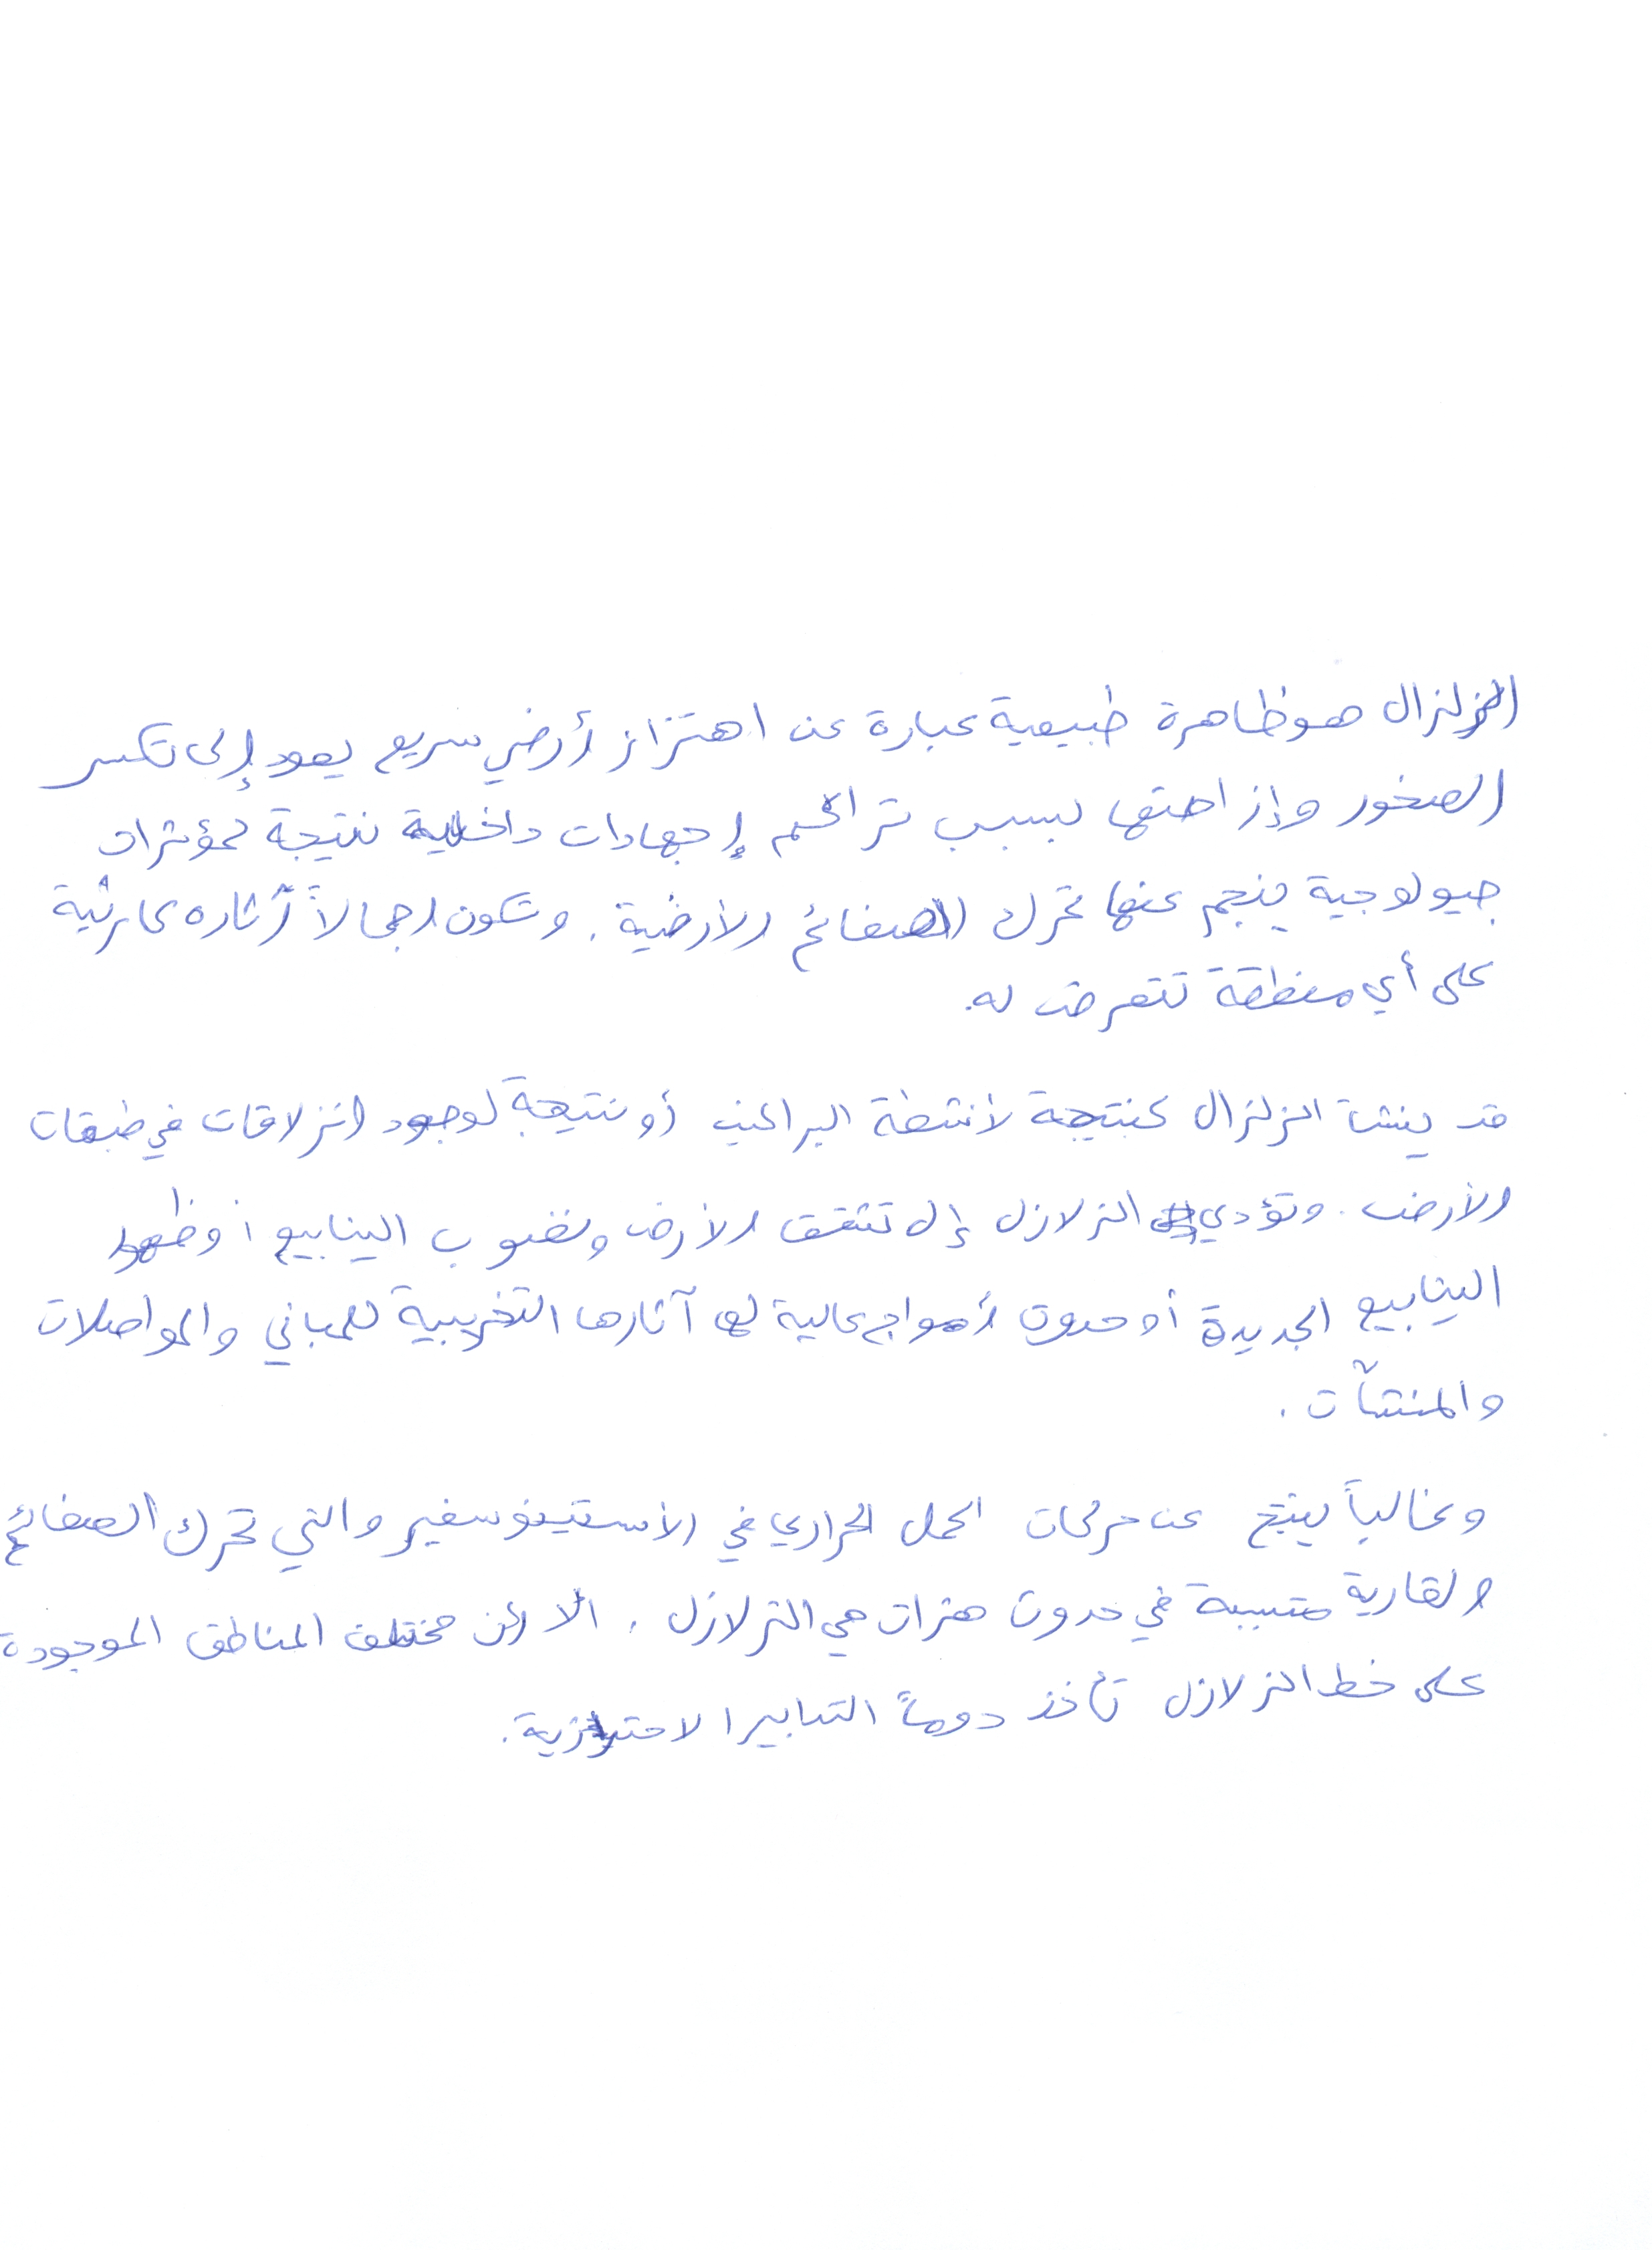 الزلزال هو ظاهرة طبيعية عبارة عن اهتزاز أرضي سريع يعود إلى تكسر
الصخور وإزاحتها بسبب تراكم إجهادات داخلية نتيجة لمؤثرات
جيولوجية ينجم عنها تحرك الصفائح الأرضية. وتكون إجمالاً آثاره كارثية
على أي منطقة تتعرض له.
قد ينشأ الزلزال كنتيجة لأنشطة البراكين أو نتيجة لوجود انزلاقات في طبقات
الأرض. وتؤدي الزلازل إلى تشقق الأرض ونضوب الينابيع أو ظهور
الينابيع الجديدة أو حدوث أمواج عالية لها آثارها التخريبية للمباني والمواصلات
والمنشآت.
وغالباً ينتج عن حركات الحمل الحراري في الأستينوسفير والتي تحرك الصفائح
القارية متسببة في حدوث هزات هي الزلازل. الا أن مختلف المناطق الموجودة
على خط الزلازل تأخذ دوماً التدابير الاحترازية.